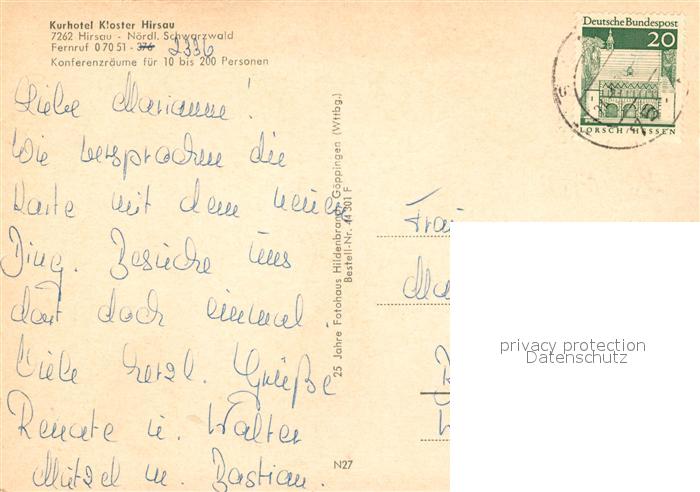 Kurhotel Kloster Hirsau
7262 Hirsau - Nördl. Schwarzwald
Fernruf 07051 - 376 2336
Konferenzräume für 10 bis 200 Personen
Deutsche Bundespost
20
LORSCH/HESSEN
Liebe Marianne!
Wie versprochen die
Karte mit dem neuen
Ding. Besuche uns
dort doch einmal.
Viele herzl. Grüße
Renate u. Walter
u. Bastian.
25 Jahre Fotohaus Hildenbrand, Göppingen (Wttbg.)
Bestell-Nr. 44 301 F
N27
privacy protection
Datenschutz